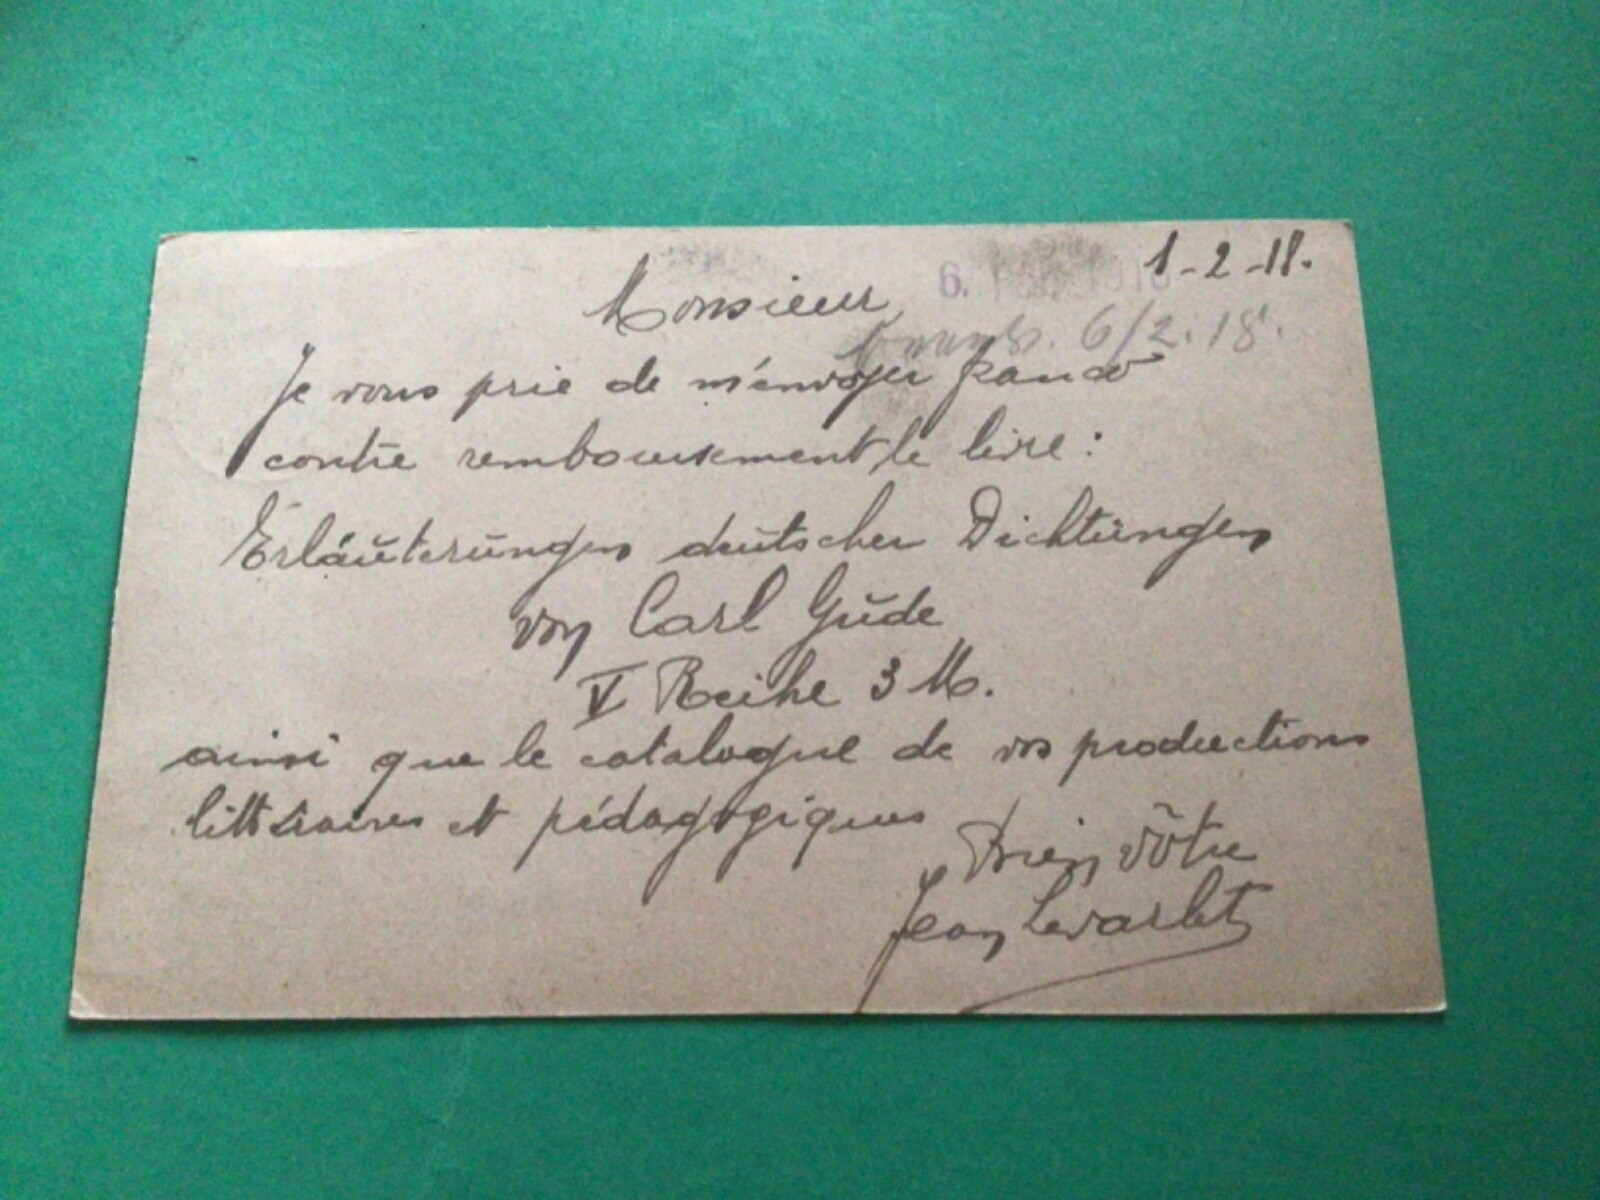 1-2-18.
Monsieur
6. 6/2.18.
Je vous prie de m'envoyer franco
contre remboursement le livre:
Erläuterungen deutscher Dichtungen
von Carl Gude
V Reihe 3 M.
ainsi que le catalogue de vos productions
littéraires et pédagogiques
Bien vôtre
Jean Levarlet